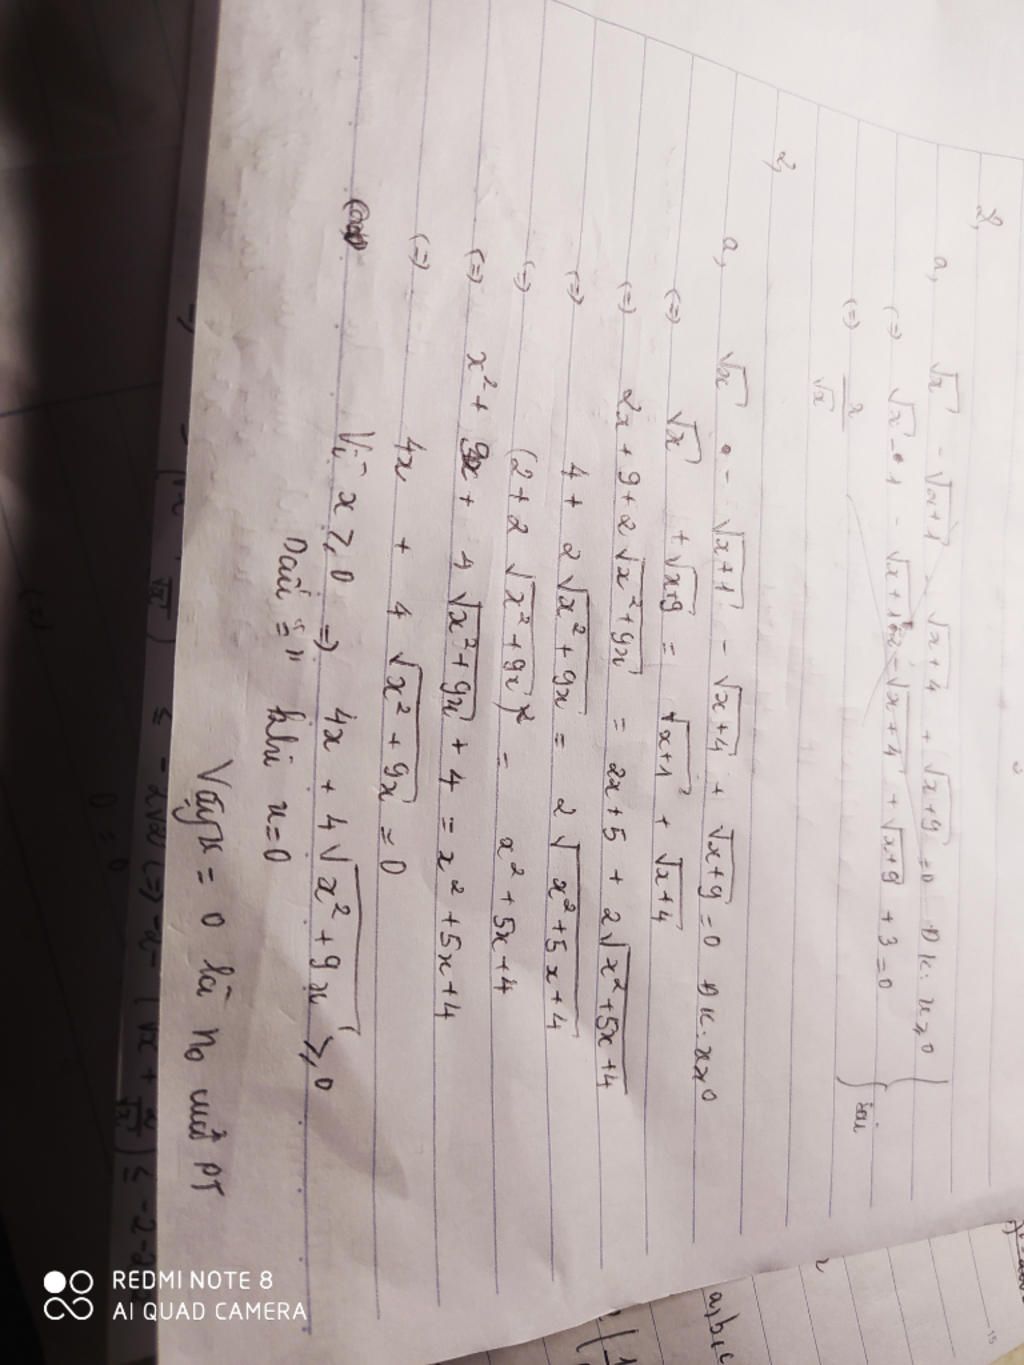 2,
a, √x - √x+1 - √x+4 + √x+9 = 0 ĐK: x ≥ 0
(=) √x - 1 - √x+1 + 2 - √x+4 + √x+9 + 3 = 0
} sai
(=) x / √x
2,
a, √x - √x+1 - √x+4 + √x+9 = 0 ĐK: x ≥ 0
(=) √x + √x+9 = √x+1 + √x+4
(=) 2x + 9 + 2√x²+9x = 2x+5 + 2√x²+5x+4
(=) 4 + 2√x²+9x = 2√x²+5x+4
(=) (2 + 2√x²+9x)² = x²+5x+4
(=) x² + 9x + 4√x²+9x + 4 = x²+5x+4
(=) 4x + 4√x²+9x = 0
Vì x ≥ 0 => 4x + 4√x²+9x ≥ 0
Dấu "=" khi x=0
Vậy x = 0 là no của PT
REDMI NOTE 8
AI QUAD CAMERA